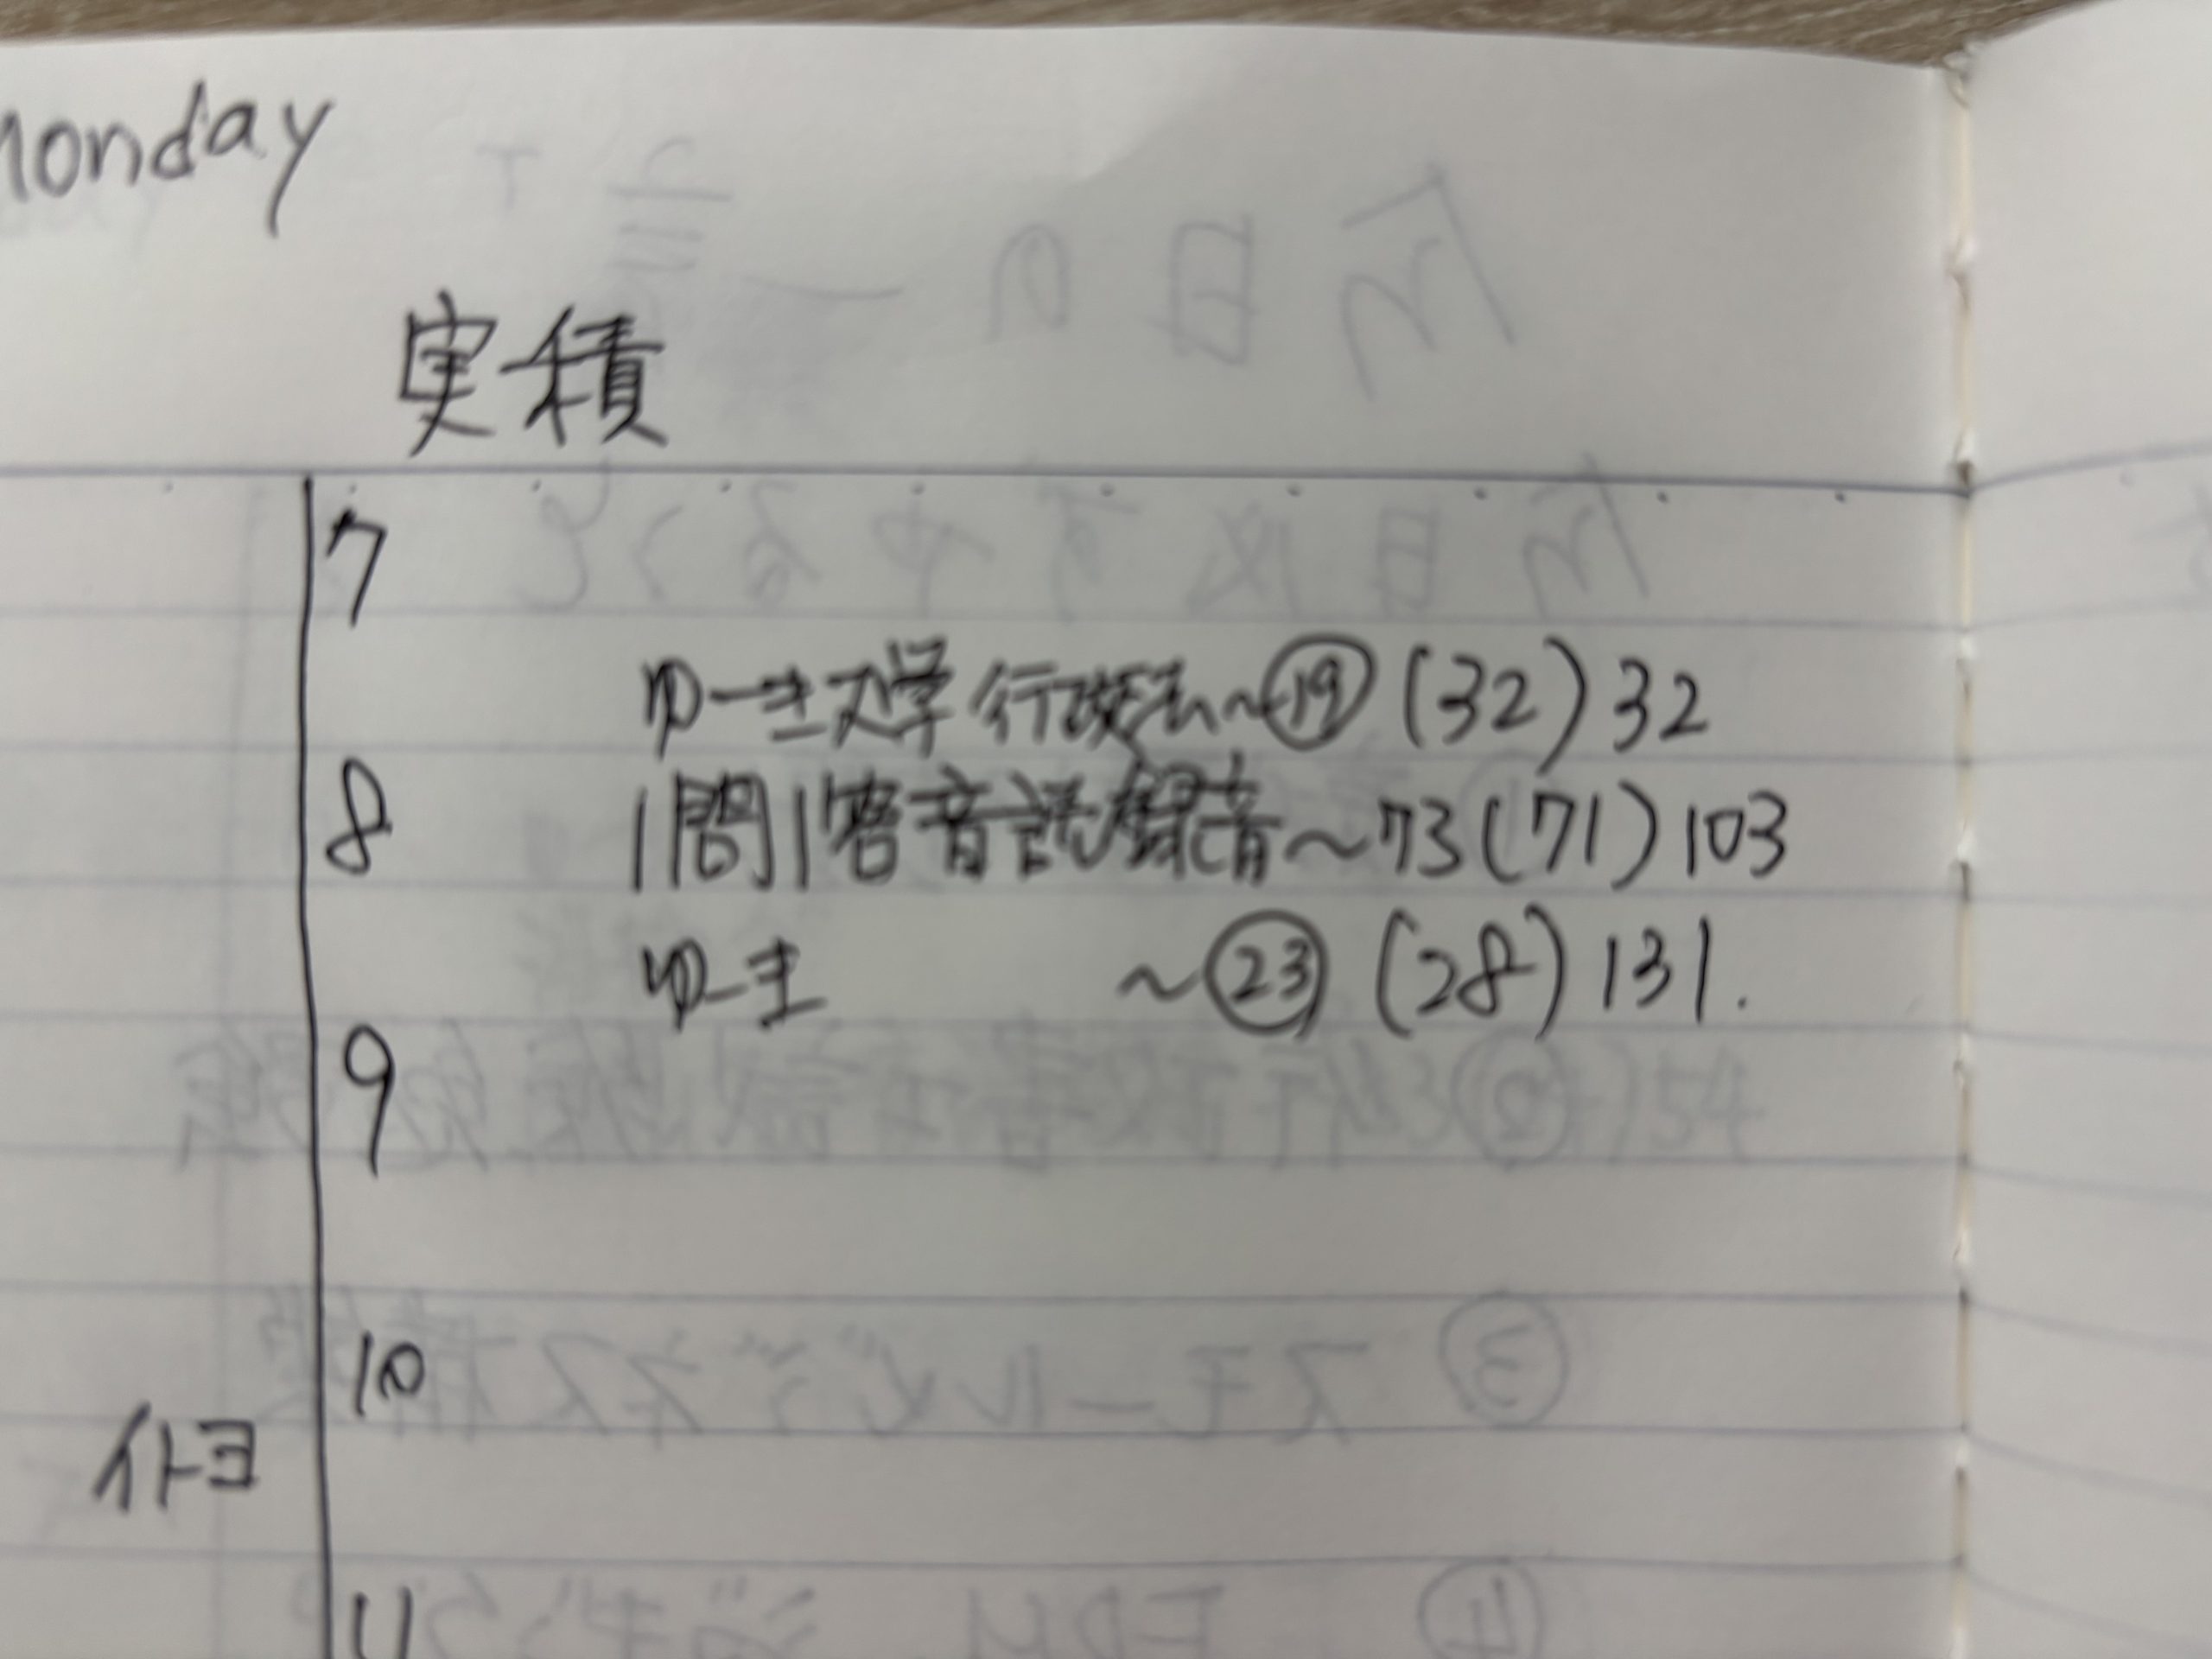 Monday
実積
7
ゆーき大学 行政法~⑲ (32) 32
8
1問1答音読録音~73(71) 103
ゆーき ~㉓ (28) 131.
9
10
仆ヨ
11